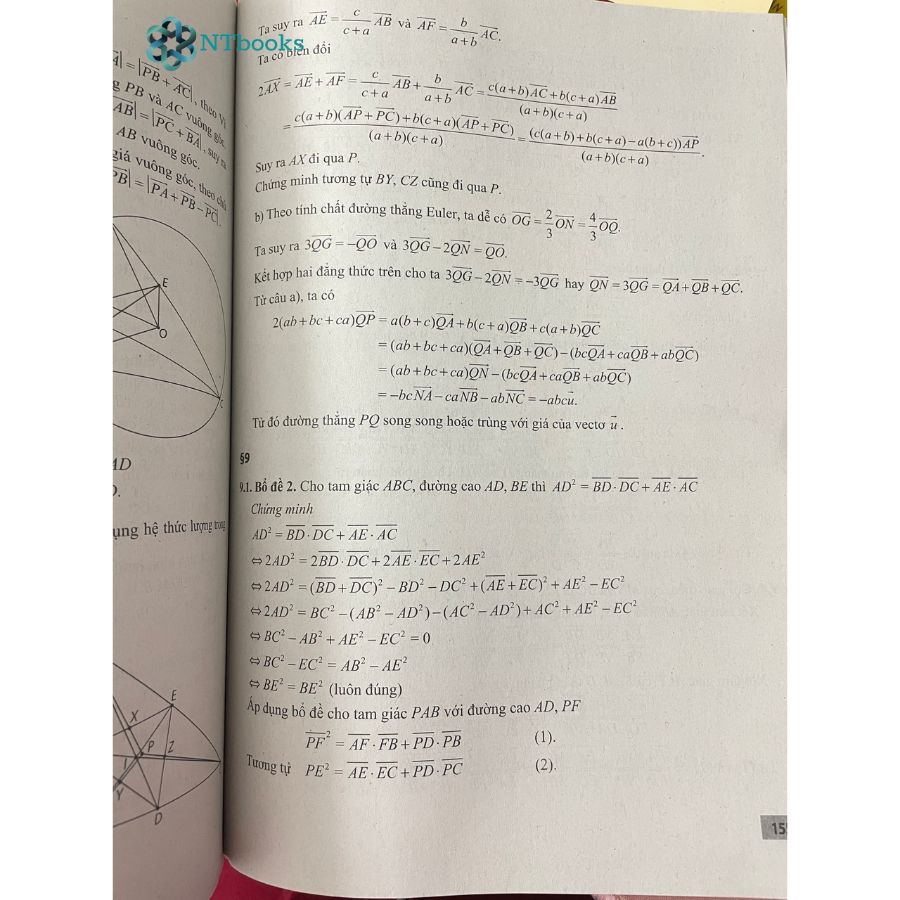 NTbooks
Ta suy ra $\overline{AE} = \frac{c}{c+a}\overline{AB}$ và $\overline{AF} = \frac{b}{a+b}\overline{AC}$.
Ta có biến đổi
$2\overline{AX} = \overline{AE} + \overline{AF} = \frac{c}{c+a}\overline{AB} + \frac{b}{a+b}\overline{AC} = \frac{c(a+b)\overline{AC} + b(c+a)\overline{AB}}{(a+b)(c+a)}$
$= \frac{c(a+b)(\overline{AP}+\overline{PC}) + b(c+a)(\overline{AP}+\overline{PC})}{(a+b)(c+a)} = \frac{(c(a+b)+b(c+a)-a(b+c))\overline{AP}}{(a+b)(c+a)}$.
Suy ra AX đi qua P.
Chứng minh tương tự BY, CZ cũng đi qua P.
b) Theo tính chất đường thẳng Euler, ta dễ có $\overline{OG} = \frac{2}{3}\overline{ON} = \frac{4}{3}\overline{OQ}$.
Ta suy ra $3\overline{QG} = -\overline{QO}$ và $3\overline{QG} - 2\overline{QN} = \overline{QO}$.
Kết hợp hai đẳng thức trên cho ta $3\overline{QG} - 2\overline{QN} = -3\overline{QG}$ hay $\overline{QN} = 3\overline{QG} = \overline{QA} + \overline{QB} + \overline{QC}$.
Từ câu a), ta có
$2(ab+bc+ca)\overline{QP} = a(b+c)\overline{QA} + b(c+a)\overline{QB} + c(a+b)\overline{QC}$
$= (ab+bc+ca)(\overline{QA}+\overline{QB}+\overline{QC}) - (bc\overline{QA}+ca\overline{QB}+ab\overline{QC})$
$= (ab+bc+ca)\overline{QN} - (bc\overline{QA}+ca\overline{QB}+ab\overline{QC})$
$= -bc\overline{NA} - ca\overline{NB} - ab\overline{NC} = -abc\vec{u}$.
Từ đó đường thẳng PQ song song hoặc trùng với giá của vectơ $\vec{u}$.
§9
9.1. Bổ đề 2. Cho tam giác ABC, đường cao AD, BE thì $AD^2 = \overline{BD} \cdot \overline{DC} + \overline{AE} \cdot \overline{AC}$
Chứng minh
$AD^2 = \overline{BD} \cdot \overline{DC} + \overline{AE} \cdot \overline{AC}$
$\Leftrightarrow 2AD^2 = 2\overline{BD} \cdot \overline{DC} + 2\overline{AE} \cdot \overline{EC} + 2AE^2$
$\Leftrightarrow 2AD^2 = (\overline{BD}+\overline{DC})^2 - BD^2 - DC^2 + (\overline{AE}+\overline{EC})^2 + AE^2 - EC^2$
$\Leftrightarrow 2AD^2 = BC^2 - (AB^2 - AD^2) - (AC^2 - AD^2) + AC^2 + AE^2 - EC^2$
$\Leftrightarrow BC^2 - AB^2 + AE^2 - EC^2 = 0$
$\Leftrightarrow BC^2 - EC^2 = AB^2 - AE^2$
$\Leftrightarrow BE^2 = BE^2$ (luôn đúng)
Áp dụng bổ đề cho tam giác PAB với đường cao AD, PF
$\overline{PF}^2 = \overline{AF} \cdot \overline{FB} + \overline{PD} \cdot \overline{PB}$ (1).
Tương tự $PE^2 = \overline{AE} \cdot \overline{EC} + \overline{PD} \cdot \overline{PC}$ (2).